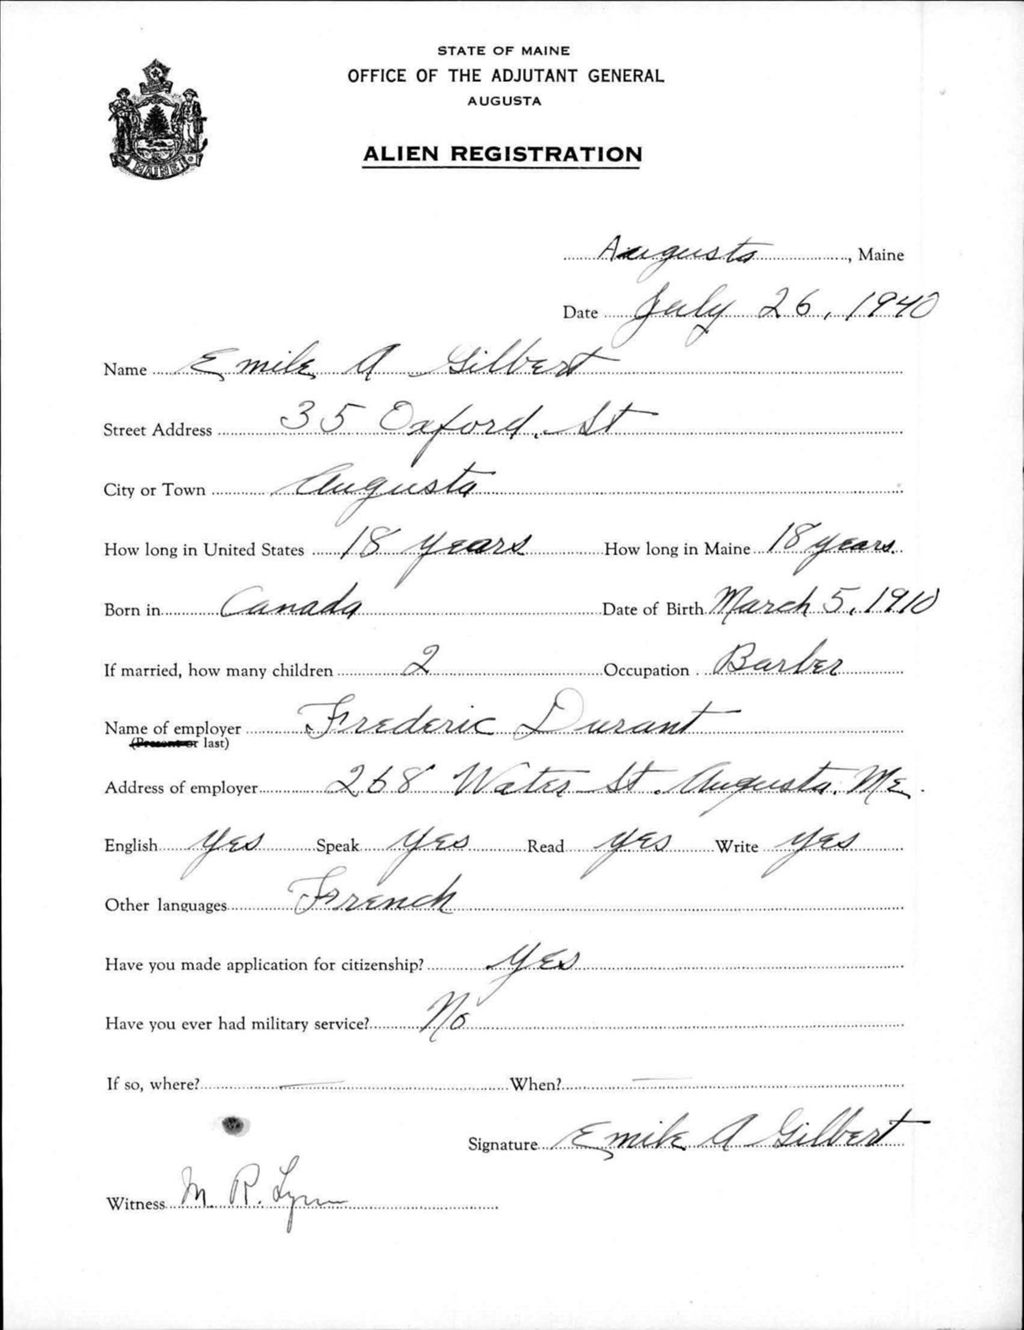 STATE OF MAINE
OFFICE OF THE ADJUTANT GENERAL
AUGUSTA
ALIEN REGISTRATION
MAINE
Augusta, Maine
Date July 26, 1940
Name Emile A Gilbert
Street Address 35 Oxford St
City or Town Augusta
How long in United States 18 years How long in Maine 18 years
Born in Canada Date of Birth March 5, 1910
If married, how many children 2 Occupation Barber
Name of employer Frederic Durant
(Present or last)
Address of employer 268 Water St. Augusta. Me.
English yes Speak yes Read yes Write yes
Other languages French
Have you made application for citizenship? yes
Have you ever had military service? No
If so, where? — When? —
Signature Emile A Gilbert
Witness M. R. Lynn